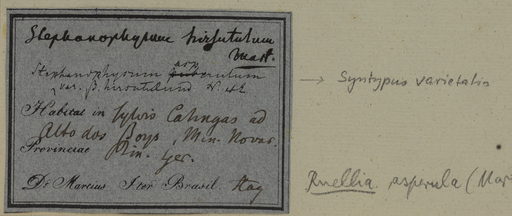 Stephanophysum hirsutulum
Mart.
Stephanophysum asperulum
var. β. hirsutulum N. et
Habitat in sylvis Catingas ad
Alto dos Boys, Min. Novas.
Provinciae Min. Ger.
Dr. Martius Iter Brasil
→ Syntypus varietatis
Ruellia asperula (Mar